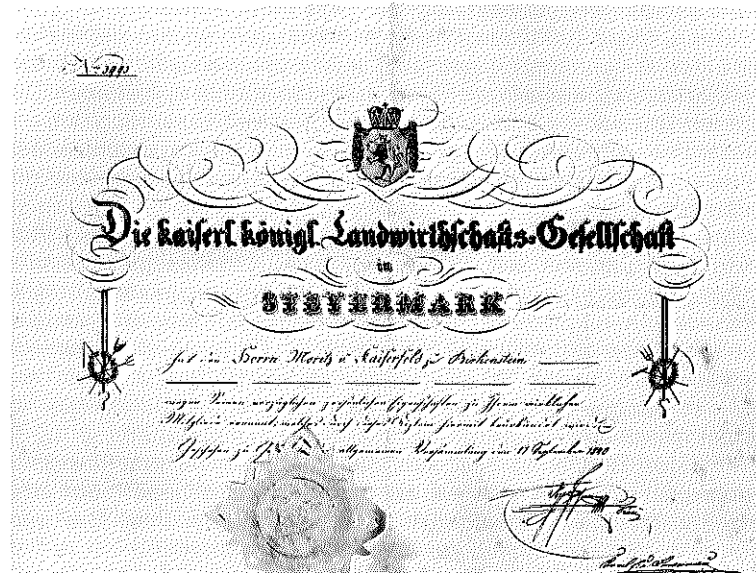 Die kaiserl. königl. Landwirthschafts-Gesellschaft
in
STEYERMARK
hat den Herrn Moritz v. Kaiserfeld zu Birkenstein
wegen Seinen vorzüglichen persönlichen Eigenschaften zu Ihrem wirklichen
Mitgliede ernannt, welches durch dieses Diplom hiermit beurkundet wird.
Geschehen zu allgemeinen Versammlung am 17 September 1840